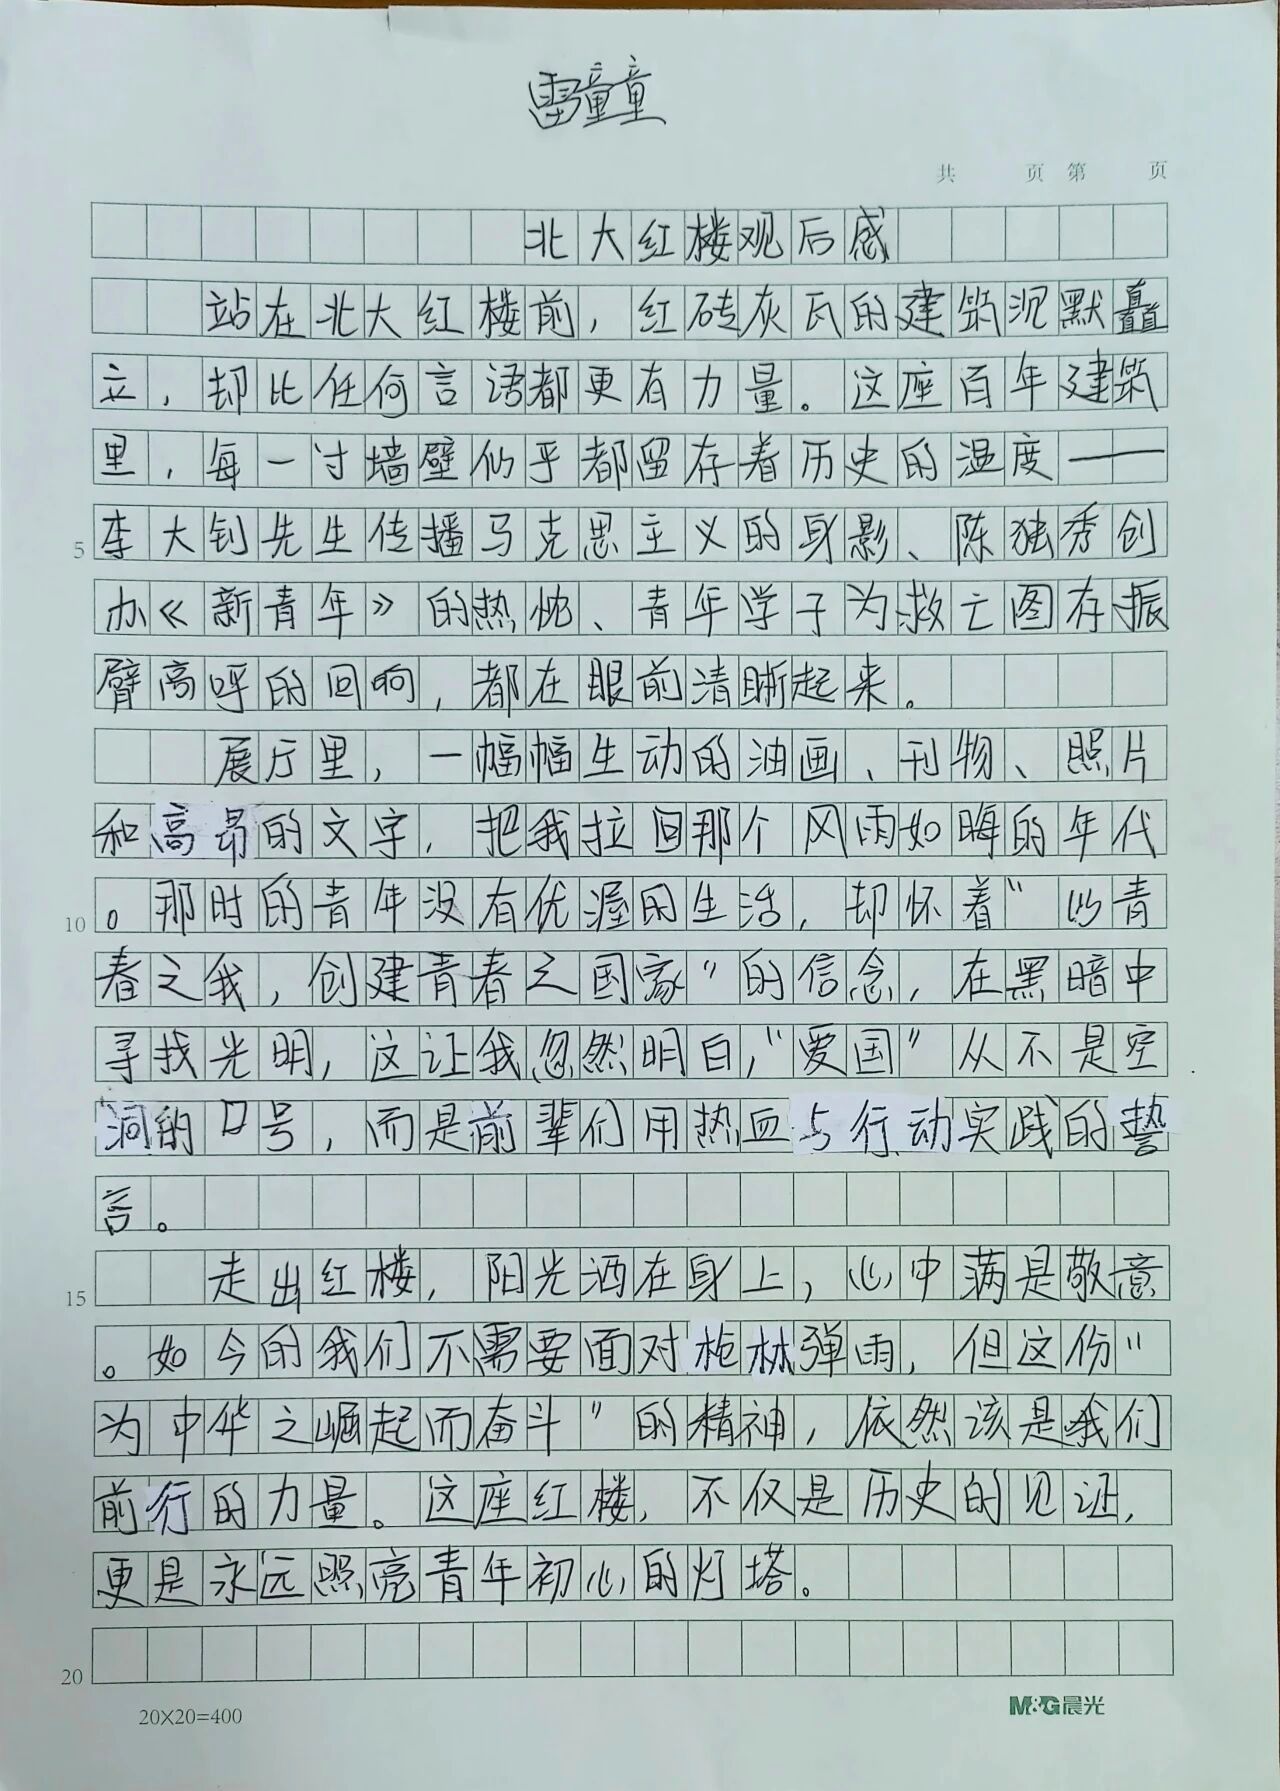 雷童童
共 页 第 页
北大红楼观后感
站在北大红楼前，红砖灰瓦的建筑沉默矗
立，却比任何言语都更有力量。这座百年建筑
里，每一寸墙壁似乎都留存着历史的温度——
5 李大钊先生传播马克思主义的身影、陈独秀创
办《新青年》的热忱、青年学子为救亡图存振
臂高呼的回响，都在眼前清晰起来。
展厅里，一幅幅生动的油画、刊物、照片
和高昂的文字，把我拉回那个风雨如晦的年代
10 。那时的青年没有优渥的生活，却怀着“以青
春之我，创建青春之国家”的信念，在黑暗中
寻找光明，这让我忽然明白，“爱国”从不是空
洞的口号，而是前辈们用热血与行动实践的誓
言。
15 走出红楼，阳光洒在身上，心中满是敬意
。如今的我们不需要面对枪林弹雨，但这份“
为中华之崛起而奋斗”的精神，依然该是我们
前行的力量。这座红楼，不仅是历史的见证，
更是永远照亮青年初心的灯塔。
20
20×20=400 M&G晨光